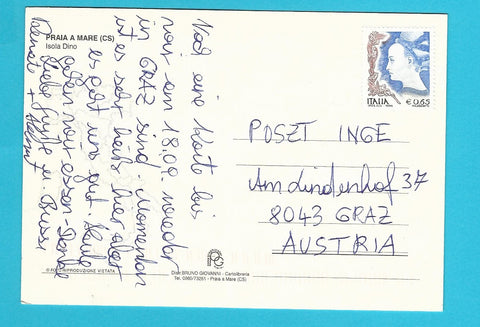 PRAIA A MARE (CS)
Isola Dino
Noch eine Karte bis
wir am 18.09. wieder
in GRAZ sind. Momentan
ist es sehr heiß hier aber
es geht uns gut. Heute
gehen wir essen - Danke
Liebe Grüße u. Bussi
Renate + Helmut
ITALIA
€ 0,65
POSZT INGE
Am Lindenhof 37
8043 GRAZ
AUSTRIA
Distr. BRUNO GIOVANNI - Cartolibreria
Tel. 0985/73251 - Praia a Mare (CS)
RIPRODUZIONE VIETATA